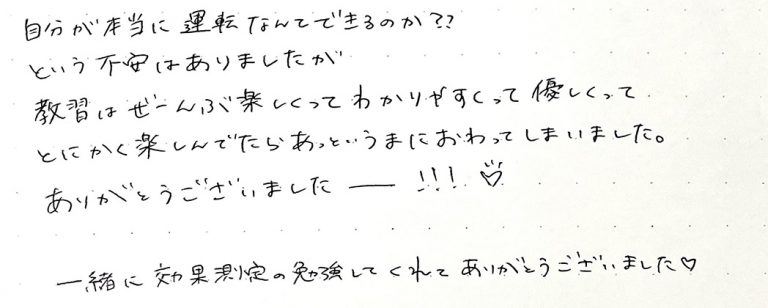 自分が本当に運転なんてできるのか??
という不安はありましたが
教習はぜーんぶ楽しくってわかりやすくって優しくって
とにかく楽しんでたらあっというまにおわってしまいました。
ありがとうございましたー!!!♡
一緒に効果測定の勉強してくれてありがとうございました♡